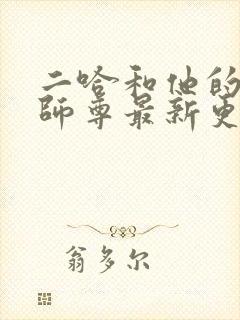 二哈和他的
師尊最新更
翁多尔